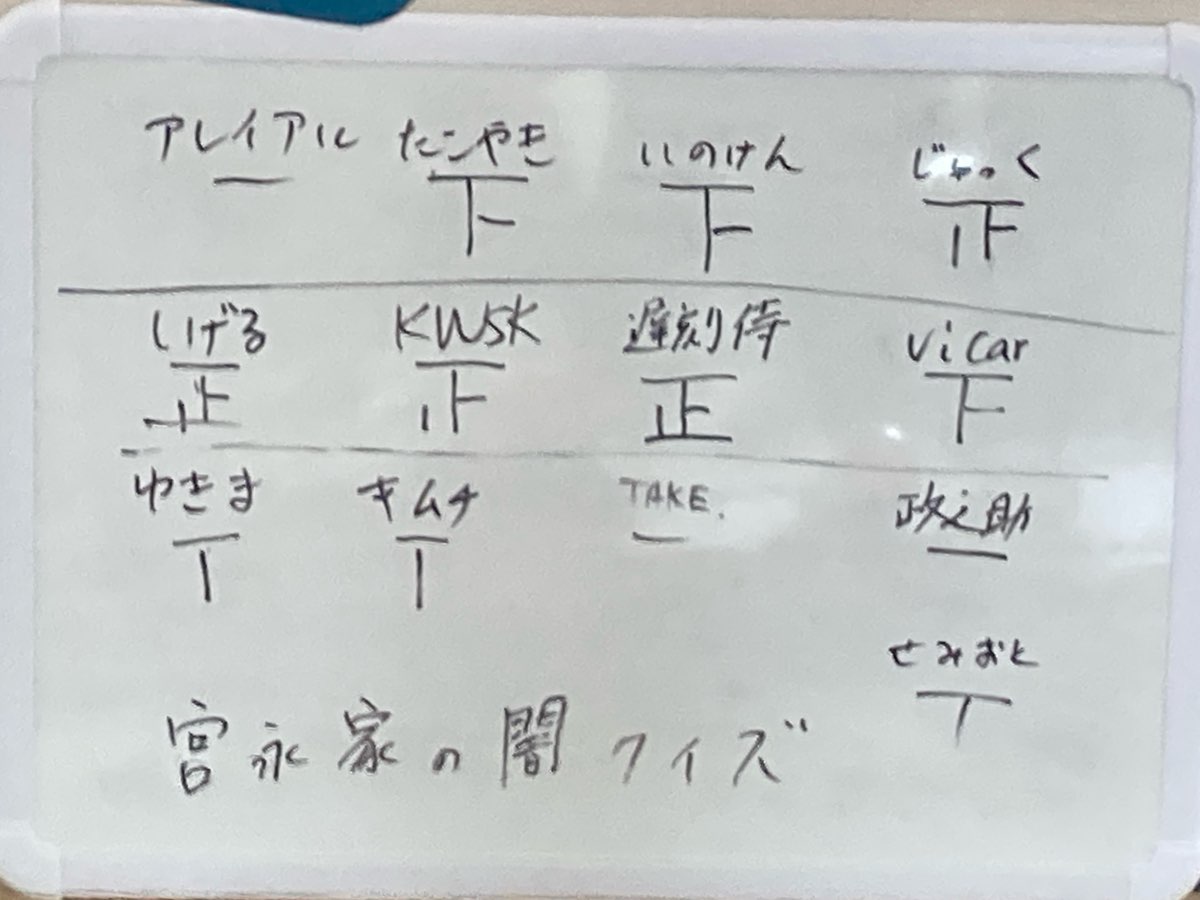 アレイアル たこやき いのけん じゃっく
一 下 下 正
しげる KWSK 遅刻侍 vicar
正 正 正 下
ゆきま キムチ TAKE. 政之助
T T 一 一
せみおと
T
宮永家の闇クイズ